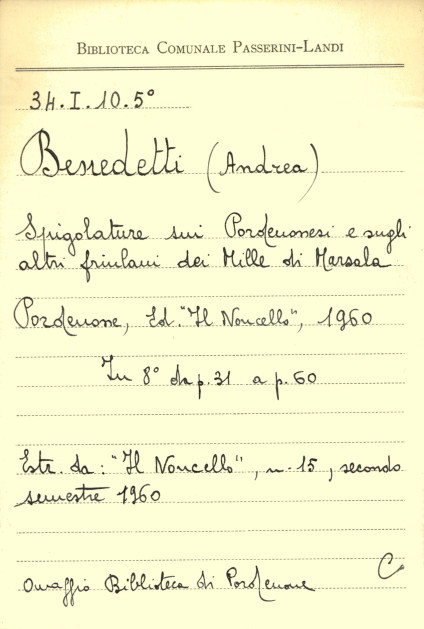 BIBLIOTECA COMUNALE PASSERINI-LANDI
34.I.10.5°
Benedetti (Andrea)
Spigolature sui Pordenonesi e sugli
altri friulani dei Mille di Marsala
Pordenone, Ed. "Il Noncello", 1960
In 8° da p. 31 a p. 60
Estr. da: "Il Noncello", n. 15, secondo
semestre 1960
C
Omaggio Biblioteca di Pordenone